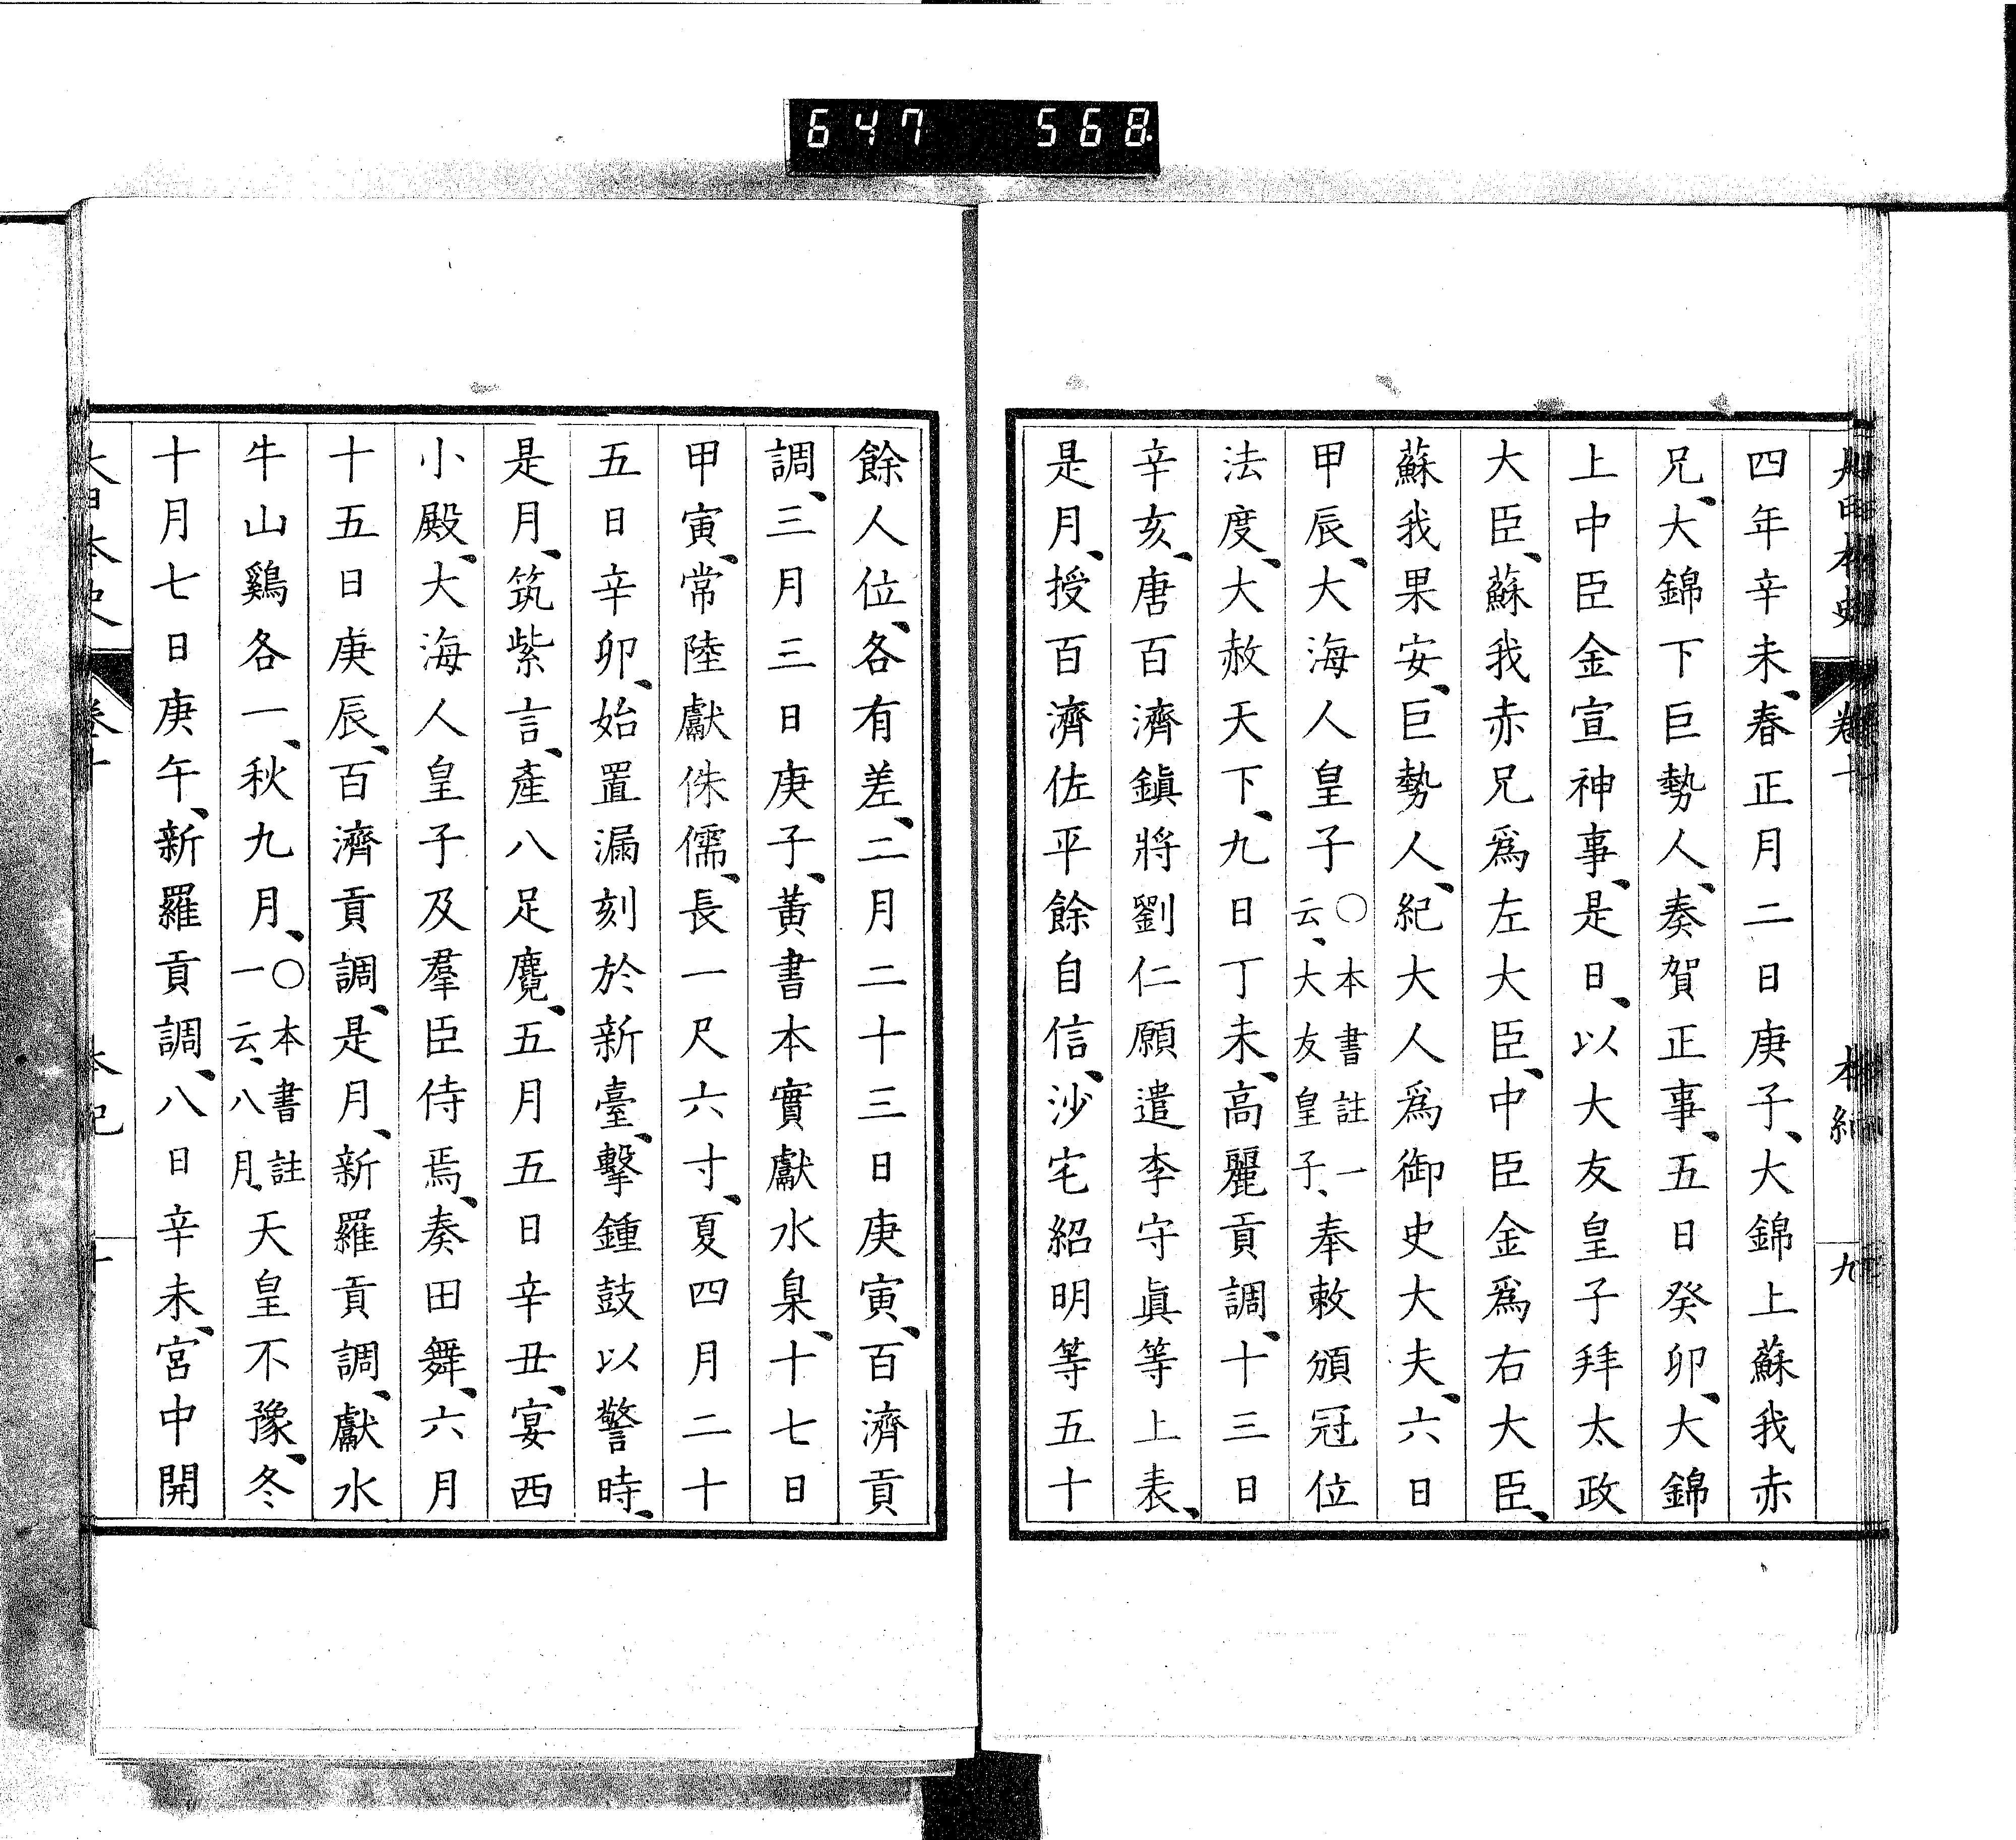 647 568
大日本史 卷十 本紀 九
四年辛未、春正月二日庚子、大錦上蘇我赤
兄、大錦下巨勢人、奏賀正事、五日癸卯、大錦
上中臣金宣神事、是日、以大友皇子拜太政
大臣、蘇我赤兄爲左大臣、中臣金爲右大臣、
蘇我果安、巨勢人、紀大人爲御史大夫、六日
甲辰、大海人皇子〇本書註一云、大友皇子、奉敕頒冠位
法度、大赦天下、九日丁未、高麗貢調、十三日
辛亥、唐百濟鎭將劉仁願遣李守眞等上表、
是月、授百濟佐平餘自信、沙宅紹明等五十
餘人位、各有差、二月二十三日庚寅、百濟貢
調、三月三日庚子、黃書本實獻水臬、十七日
甲寅、常陸獻侏儒、長一尺六寸、夏四月二十
五日辛卯、始置漏刻於新臺、擊鍾鼓以警時、
是月、筑紫言、產八足麑、五月五日辛丑、宴西
小殿、大海人皇子及羣臣侍焉、奏田舞、六月
十五日庚辰、百濟貢調、是月、新羅貢調、獻水
牛山鷄各一、秋九月、〇本書註一云、八月、天皇不豫、冬
十月七日庚午、新羅貢調、八日辛未、宮中開
大日本史 卷十 本紀 十